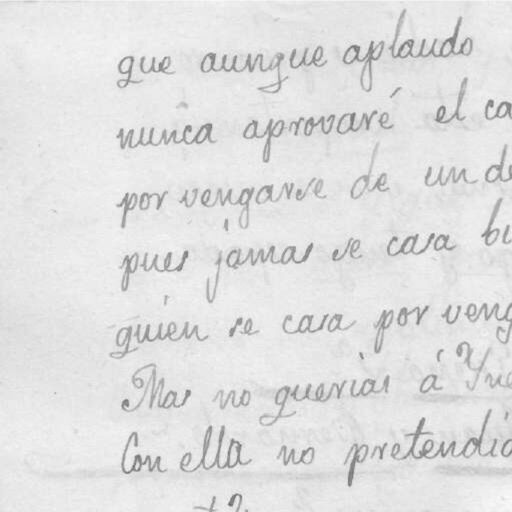 que aunque aplaudo
nunca aprovaré el ca
por vengarse de un de
pues jamas se casa bi
quien se casa por veng
Mas no querias á Yne
Con ella no pretendia